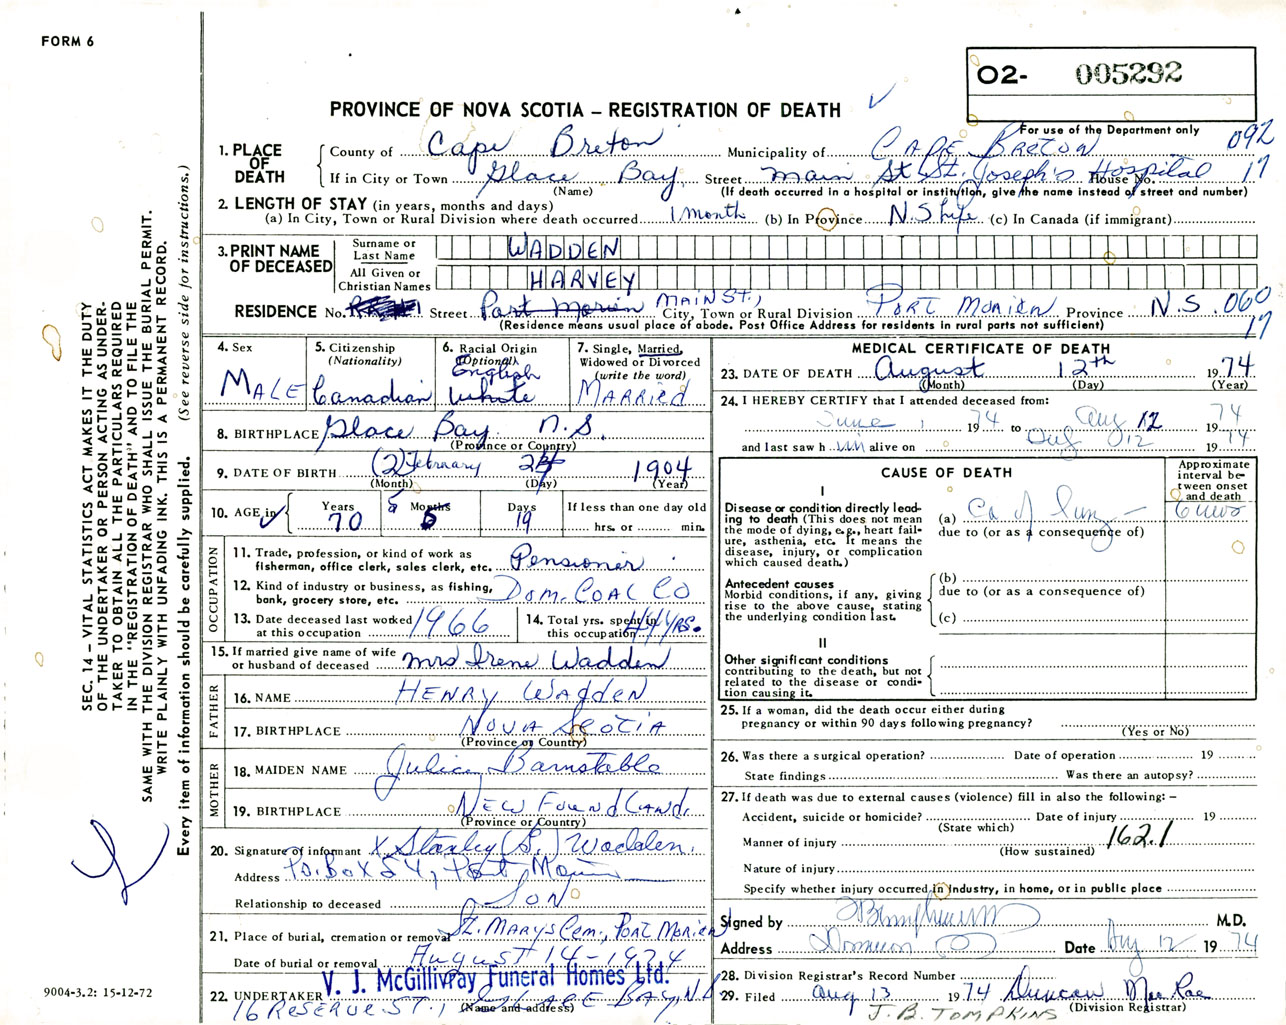 FORM 6
O2- 005292
PROVINCE OF NOVA SCOTIA – REGISTRATION OF DEATH
For use of the Department only
092
17
1. PLACE OF DEATH
County of Cape Breton Municipality of CAPE BRETON
If in City or Town Glace Bay Street Main St. St. Joseph's Hospital House No.
(Name) (If death occurred in a hospital or institution, give the name instead of street and number)
2. LENGTH OF STAY (in years, months and days)
(a) In City, Town or Rural Division where death occurred 1 month (b) In Province N.S life (c) In Canada (if immigrant)
3. PRINT NAME OF DECEASED
Surname or Last Name WADDEN
All Given or Christian Names HARVEY
RESIDENCE No. Street Port Morien MAIN ST., City, Town or Rural Division PORT MORIEN Province N.S. 060
17
(Residence means usual place of abode. Post Office Address for residents in rural parts not sufficient)
4. Sex
MALE
5. Citizenship
(Nationality)
Canadian
6. Racial Origin
(Optional)
English
White
7. Single, Married, Widowed or Divorced
(write the word)
MARRIED
8. BIRTHPLACE Glace Bay N.S.
(Province or Country)
9. DATE OF BIRTH (2) February 24 1904
(Month) (Day) (Year)
10. AGE in
Years 70
Months 5
Days 19
If less than one day old
hrs. or min.
OCCUPATION
11. Trade, profession, or kind of work as fisherman, office clerk, sales clerk, etc. Pensioner
12. Kind of industry or business, as fishing, bank, grocery store, etc. DOM. COAL CO
13. Date deceased last worked at this occupation 1966
14. Total yrs. spent in this occupation 44 YRS.
15. If married give name of wife or husband of deceased Mrs Irene Wadden
FATHER
16. NAME HENRY WADDEN
17. BIRTHPLACE NOVA SCOTIA
(Province or Country)
MOTHER
18. MAIDEN NAME Julia Barnstable
19. BIRTHPLACE NEW FOUNDLAND.
(Province or Country)
20. Signature of informant X Stanley (S.) Wadden.
Address P.O. Box 24, Port Morien
Relationship to deceased SON
21. Place of burial, cremation or removal St. MARYS Cem., PORT MORIEN
Date of burial or removal AUGUST 14 - 1974
V. J. McGillivray Funeral Homes Ltd.
22. UNDERTAKER
16 RESERVE ST., GLACE BAY, N.S
(Name and address)
MEDICAL CERTIFICATE OF DEATH
23. DATE OF DEATH August 12th 1974
(Month) (Day) (Year)
24. I HEREBY CERTIFY that I attended deceased from:
June 1 1974 to Aug 12 1974
and last saw h im alive on Aug 12 1974
CAUSE OF DEATH
Approximate interval between onset and death
I
Disease or condition directly leading to death (This does not mean the mode of dying, e.g., heart failure, asthenia, etc. It means the disease, injury, or complication which caused death.)
(a) Ca of lung 6 mos
due to (or as a consequence of)
Antecedent causes
Morbid conditions, if any, giving rise to the above cause, stating the underlying condition last.
(b)
due to (or as a consequence of)
(c)
II
Other significant conditions contributing to the death, but not related to the disease or condition causing it.
25. If a woman, did the death occur either during pregnancy or within 90 days following pregnancy?
(Yes or No)
26. Was there a surgical operation? Date of operation 19
State findings Was there an autopsy?
27. If death was due to external causes (violence) fill in also the following: –
Accident, suicide or homicide? Date of injury 19
(State which)
Manner of injury 162.1
(How sustained)
Nature of injury
Specify whether injury occurred in industry, in home, or in public place
Signed by M.D.
Address Dominion Date Aug 12 1974
28. Division Registrar's Record Number
29. Filed Aug 13 1974 Duncan MacRae
(Division Registrar)
J. B. TOMPKINS
SEC. 14 – VITAL STATISTICS ACT MAKES IT THE DUTY
OF THE UNDERTAKER OR PERSON ACTING AS UNDER-
TAKER TO OBTAIN ALL THE PARTICULARS REQUIRED
IN THE "REGISTRATION OF DEATH" AND TO FILE THE
SAME WITH THE DIVISION REGISTRAR WHO SHALL ISSUE THE BURIAL PERMIT.
WRITE PLAINLY WITH UNFADING INK. THIS IS A PERMANENT RECORD.
Every item of information should be carefully supplied. (See reverse side for instructions.)
9004-3.2: 15-12-72